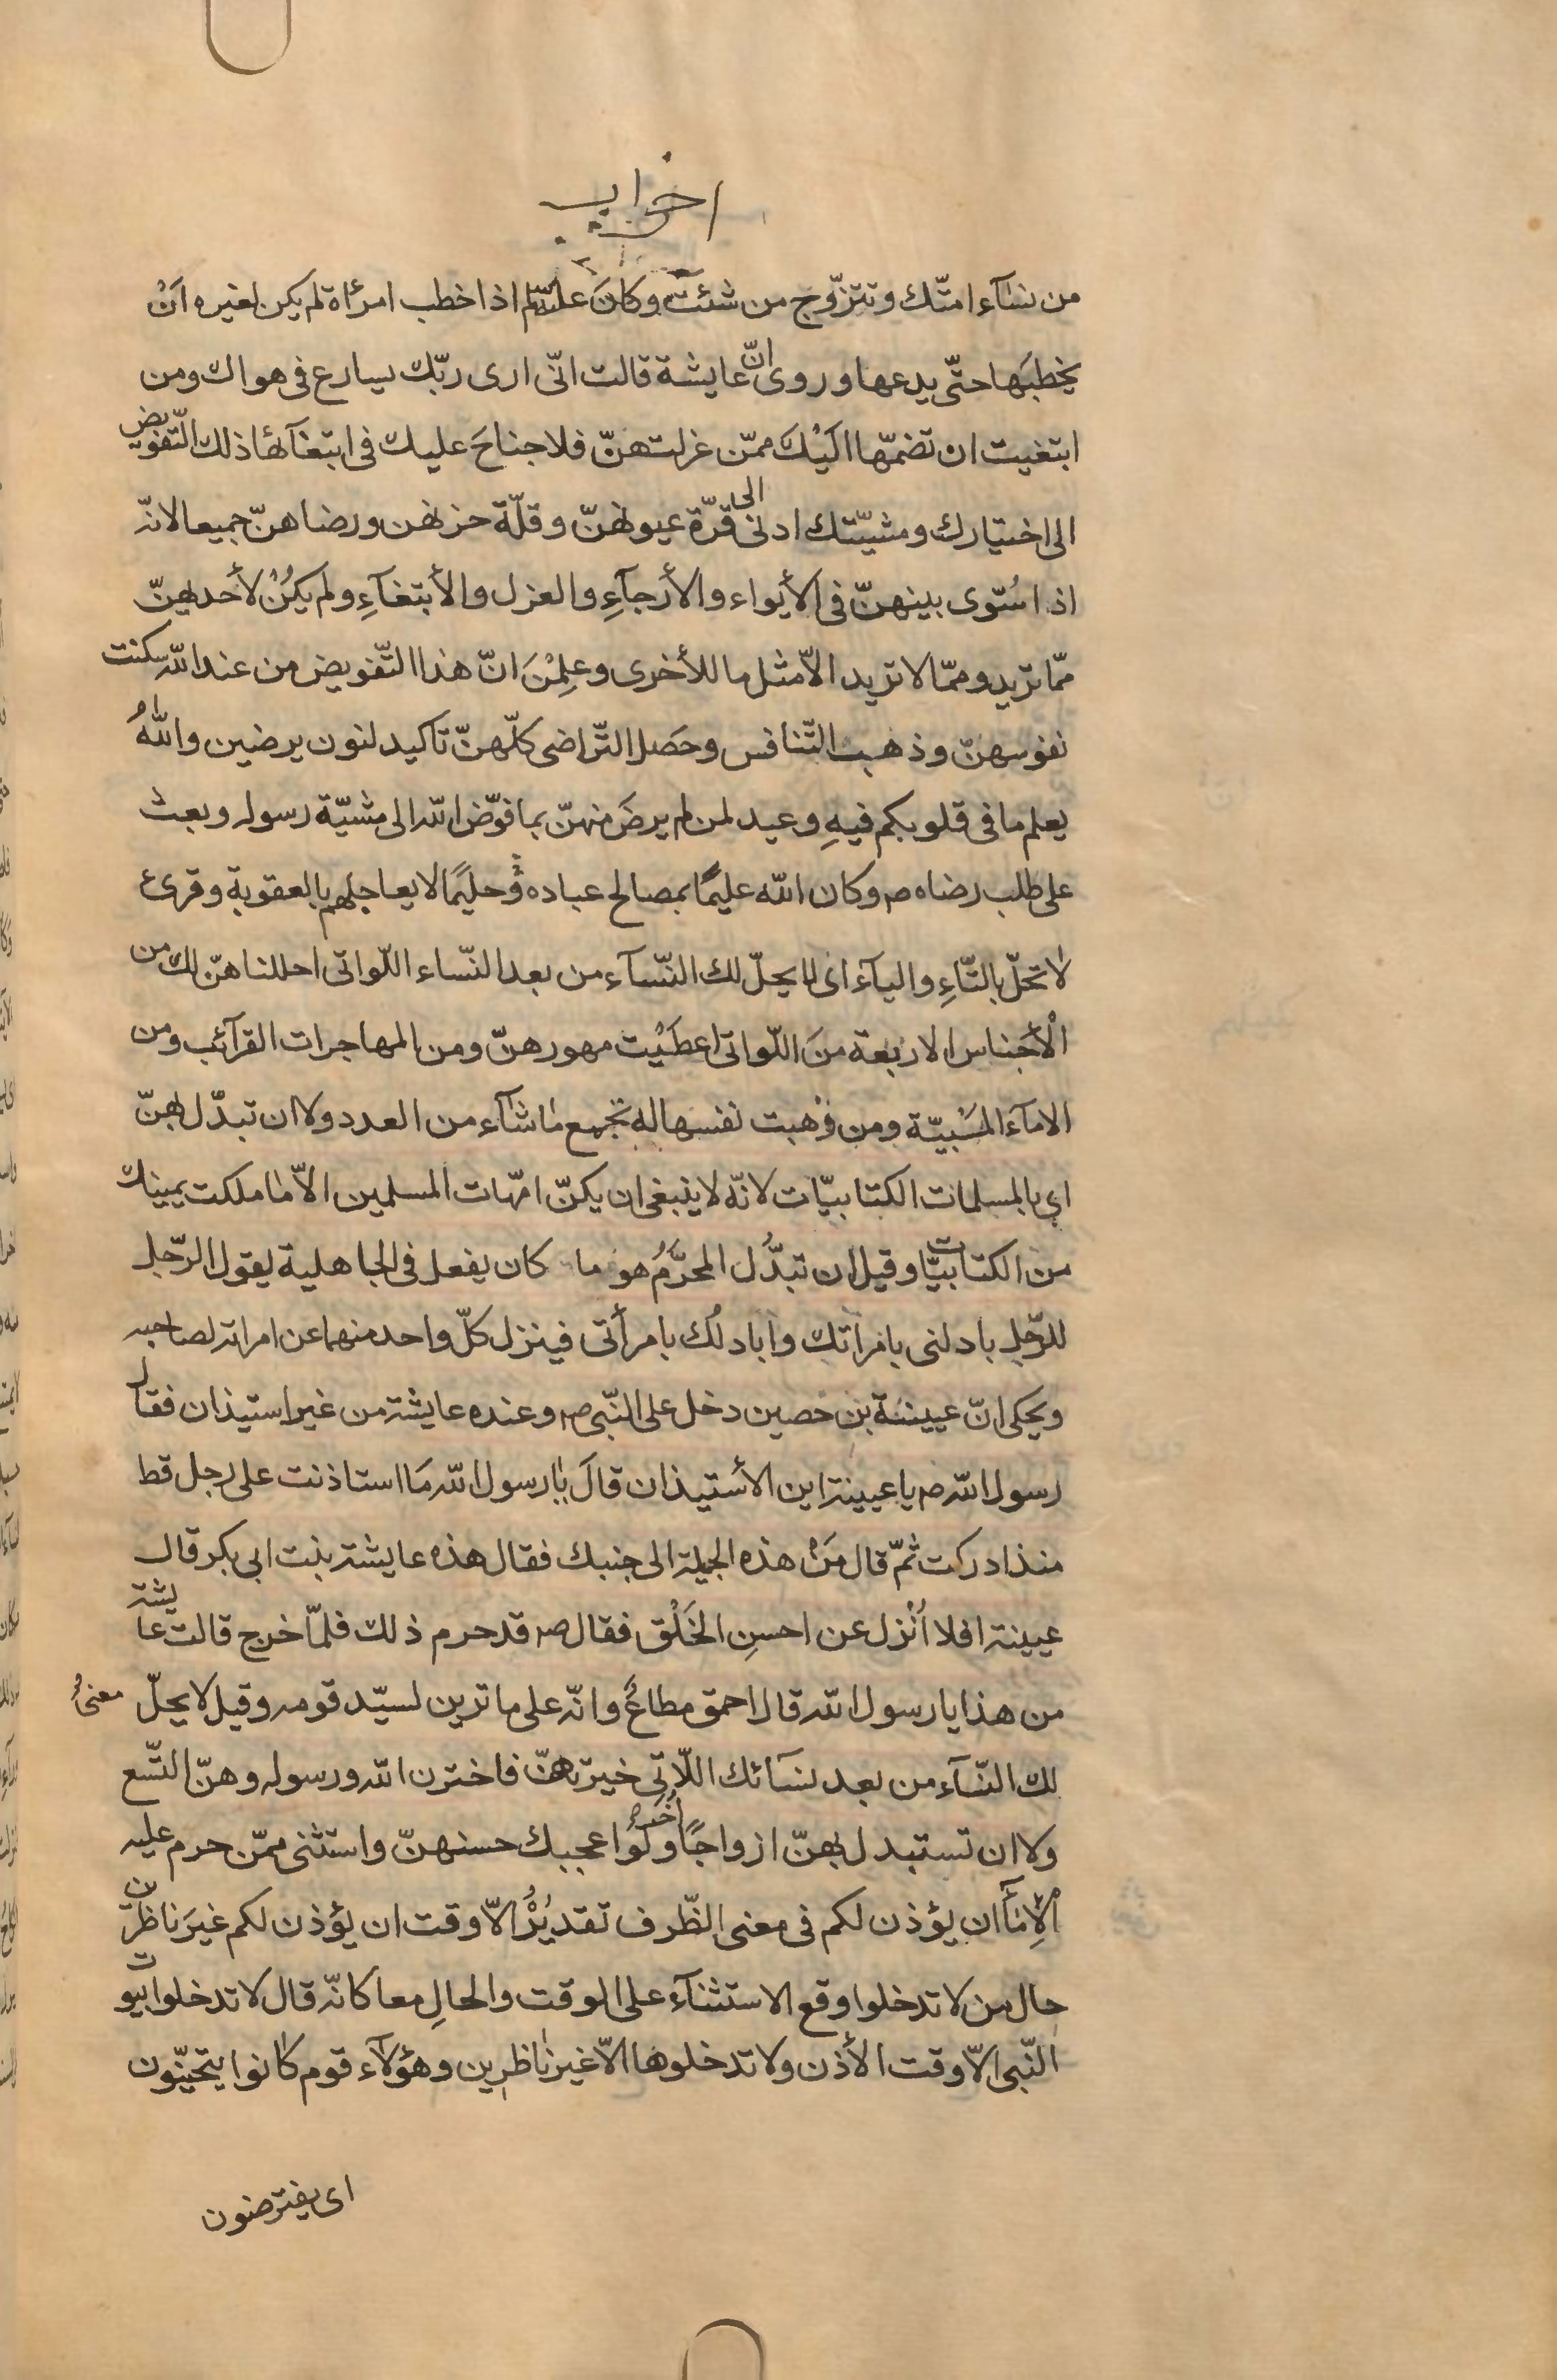 احزاب
من نسآء امتّك وتتزوّج من شئت وكانَ علیه السّلم اذا خطب امرئاة لم يكن لغيره اَنْ
يخطبَها حتّى يدعها وروى انّ عايشة قالت انّى ارى ربّك يسارع فى هواك ومن
ابتغيت ان تضمّها اليْكَ ممّن عزلت هنّ فلا جناحَ عليك فى ابتغآئها ذلك التّفويض
الى اختيارك ومشيّتك ادنى الى قرّة عيونهنّ وقلّة حزنهن ورضاهنّ جميعا لانّه
اذا سُوّى بينهنّ فى الأيواء والأرجآءِ والعزل والأبتغآءِ ولم يكُنْ لأحديهنّ
ممّا تريد وممّا لا تريد الاّ مثل ما للأخرى وعلِمْنَ انّ هذا التّفويض من عند اللّه سكنت
نفوسهنّ وذهب التّنافس وحَصَل التّراضى كلّهنّ تاكيد لنون يرضين واللّهُ
يعلم ما فى قلوبكم فيهِ وعيد لمن لم يرضَ منهنّ بما فوّض اللّه الى مشيّة رسوله وبعث
على طلب رضاه ص وكان اللّه عليمًا بمصالح عباده وَحليمًا لا يعاجلهم بالعقوبة وقرئ
لا تحلّ بالتّاءِ واليآء اى لا يحلّ لك النّسآء من بعد النّساء اللّواتى احللنا هنّ لك من
الْأجناس الاربَعة منَ اللّواتى اعطَيْت مهورهنّ ومن المهاجرات القرآئب ومن
الامآءَ المَسْبيّة ومن وَهبت نفسها له تجمع ما شآء من العدد ولا ان تبدّل بهنّ
اى بالمسلمات الكتابيّات لانّه لا ينبغى ان يكنّ امّهات المسلمين الاّ ما ملكت يمينك
من الكتابيّات وقيل ان تبدُّل المحرَّمُ هو ما كان يفعل فى الجاهلية يقول الرّجل
للرّجل بادلنى بامراتك واُبادلُك بامرأتى فينزل كلّ واحد منهما عن امراته لصاحبه
ويحكى انّ عيينة بن حصين دخل على النّبى ص وعنده عايشة من غير استيذان فقال
رسول اللّه ص يا عيينة اين الأستيذان قالَ يا رسول اللّه مَا استاذنت على رجل قط
منذ ادركت ثمّ قال مَنْ هذه الجميلة الى جنبك فقال هذه عايشة بنت ابى بكر قال
عيينة افلا اُنْزل عن احسنِ الخَلْق فقال ص قد حرم ذلك فلمّا خرج قالت عايشة
من هذا يا رسول اللّه قال احمق مطاعٌ وانّه على ما ترين لسيّد قومه وقيل لا يحلّ معنى
لك النّسآء من بعد نسَائك اللّاتِى خيرتهنّ فاخترن اللّه ورسوله وهنّ التّسع
ولا ان تستبدل بهنّ ازواجًا اُخَر ولَو اعجبك حسنهنّ واستثنى ممّن حرم عليه
الإمَآءَ ان يؤذن لكم فى معنى الظّرف تقديرُهُ الاّ وقت ان يؤذن لكم غيرَ ناظرين
حال من لا تدخلوا وقع الاستثنآء على الوقت والحالِ معا كانّه قال لا تدخلوا بيوت
النّبى الاّ وقت الأذن ولا تدخلوها الاّ غير ناظرين وهؤلآء قوم كانوا يتحيّنون
اى يفترصنون